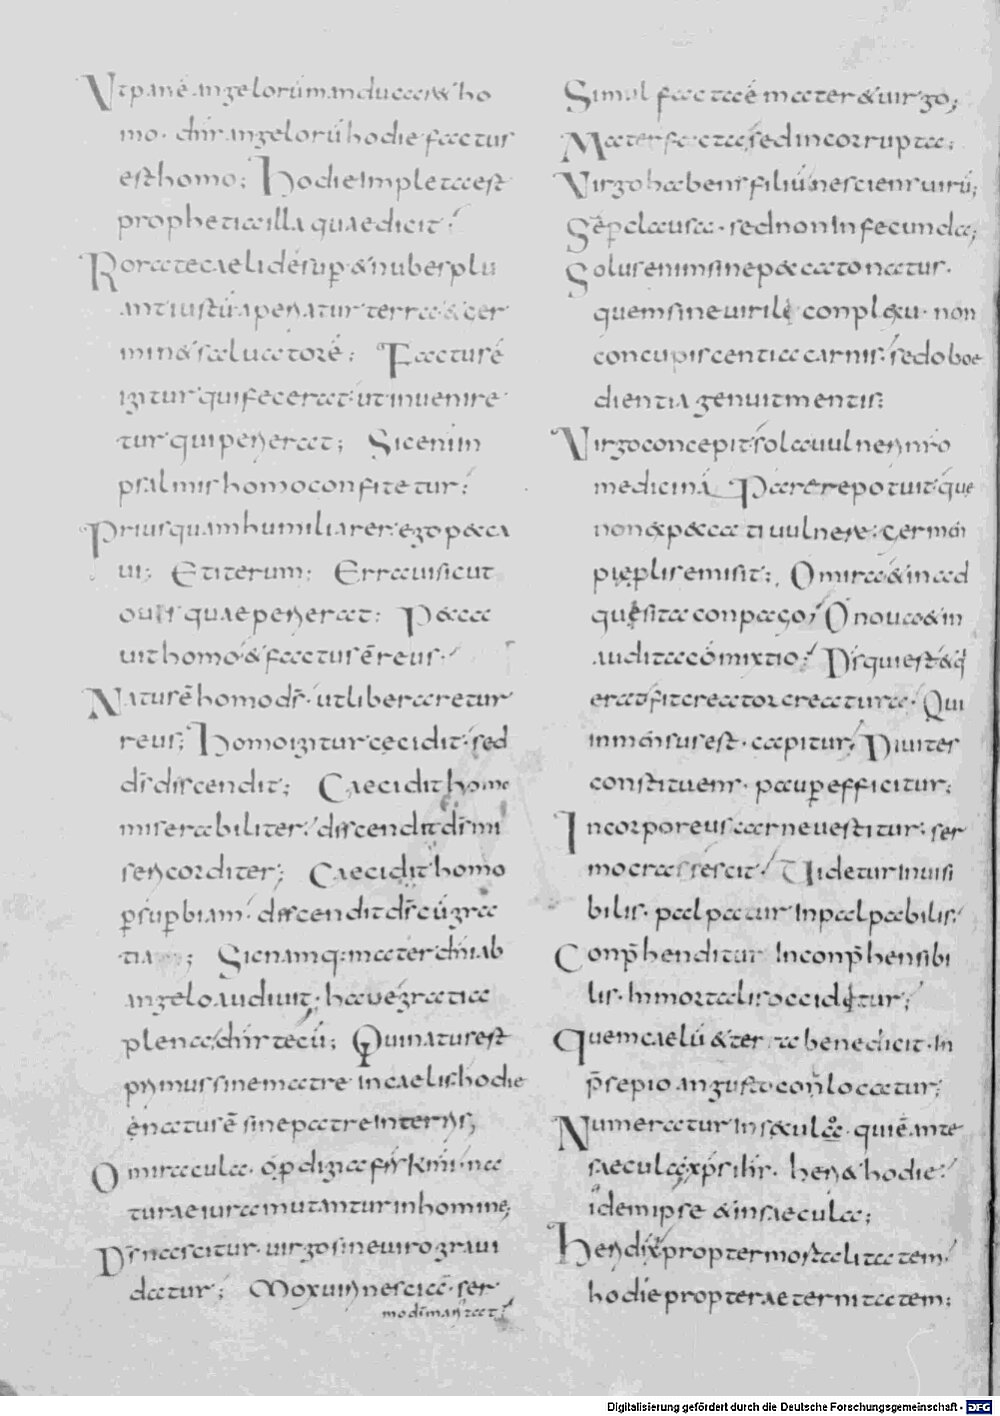 Ut pané angelorū manducaret ho
mo. dn̄s angelorū hodie factus
est homo; Hodie impleta est
prophetia illa quae dicit;
Rorate caeli desup̱ & nubes plu
ant iustū aperiatur terra & ger
min& saluatorē; Factus ē
igitur qui fecerat. ut inuenire
tur qui perierat; Sic enim
psalmis homo confitetur;
Priusquam humiliarer. ego pecca
ui; Et iterum; Erraui sicut
ouis quae perierat; Pecca
uit homo & factus ē reus;
Natus ē homo ds̄. ut liberaretur
reus; Homo igitur cecidit. sed
ds̄ discendit; Caecidit homo
miserabiliter. discendit ds̄ mi
sericorditer; Caecidit homo
ꝑ suꝑbiam. discendit ds̄ cū gra
tia; Sic namq: mater dn̄i ab
angelo audiuit. haue gratia
plena dn̄s tecū; Qui natus est
primus sine matre in caelis. hodie
natus ē sine patre in terris;
O miracula. o prodigia frs̄ km̄i. na
turae iura mutantur in homine;
Ds̄ nascitur. uirgo sine uiro graui
datur; Mox uiri nescia. ser
mo dī maritat;
Simul facta ē mater & uirgo;
Mater facta sed incorrupta;
Virgo habens filiū nesciens uirū;
Semꝑ clausa. sed non infecunda;
Solus enim sine peccato natus.
quem sine uirili conplexu. non
concupiscentia carnis. sed oboe
dientia genuit mentis;
Virgo concepit. sola uulneri nr̄o
medicinā Parere potuit. que
non ex peccati uulnere. germen
pię plis emisit; O mira & inad
quęsita conpago; O noua & in
audita cōmixtio; Ds̄ qui est & q̇
erat fit creator creatura. Qui
inmensus est. capitur; Diuites
constituens. pauꝑ efficitur;
Incorporeus carne uestitur. ser
mo crassescit; Uidetur inuisi
bilis. palpatur inpalpabilis;
Conp̄henditur inconp̄hensibi
lis. Inmortalis occiditur;
Quem caelū & terra benedicit. in
p̄sepio angusto conlocatur;
Numeratur in saecula. qui ē ante
saecula xp̄s filis. heri & hodie
idem ipse & in saecula;
Heri dix propter mostalitatem
hodie propter aeternitatem;
Digitalisierung gefördert durch die Deutsche Forschungsgemeinschaft - DFG